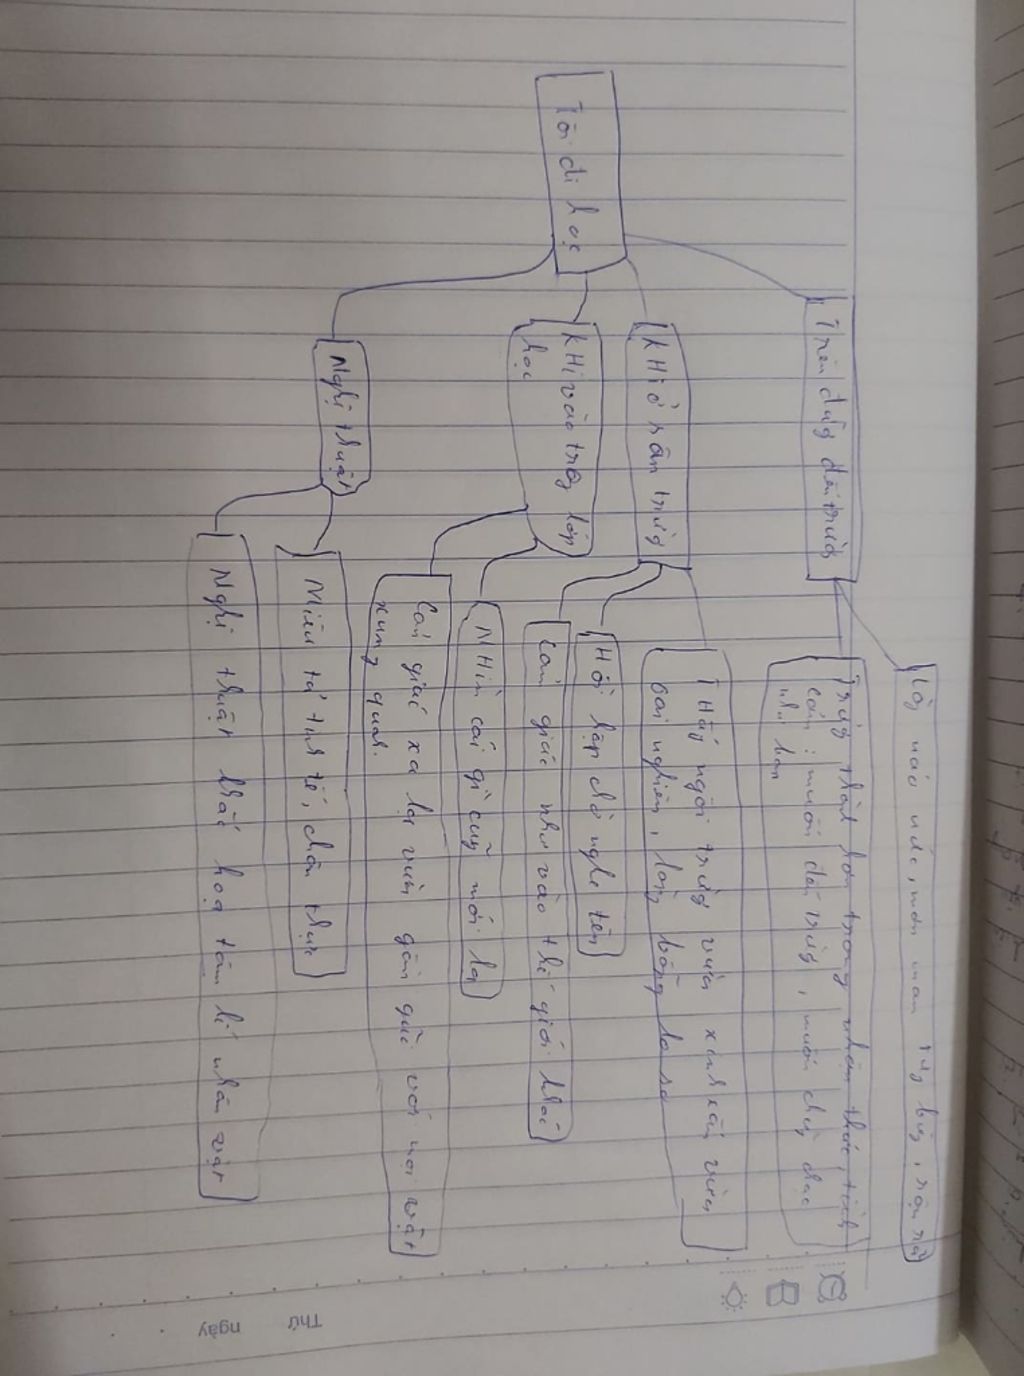 Tôi đi học
Trên đường đến trường
Lòng náo nức, mơn man tưng bừng, rộn rã
Trưởng thành hơn trong nhận thức, tình
cảm: muốn đến trường, muốn chững chạc
như bạn
KHi ở sân trường
THấy ngôi trường vừa xinh xắn vừa
oai nghiêm, lòng bỗng lo sợ
Hồi hộp chờ nghe tên
Cảm giác như vào thế giới khác
KHi vào trong lớp
học
NHìn cái gì cũng mới lạ
Cảm giác xa lạ vừa gần gũi với mọi vật
xung quanh.
Nghị thuật
Miêu tả tinh tế, chân thực
Nghị thuật khắc hoạ tâm lí nhân vật
Thứ ngày